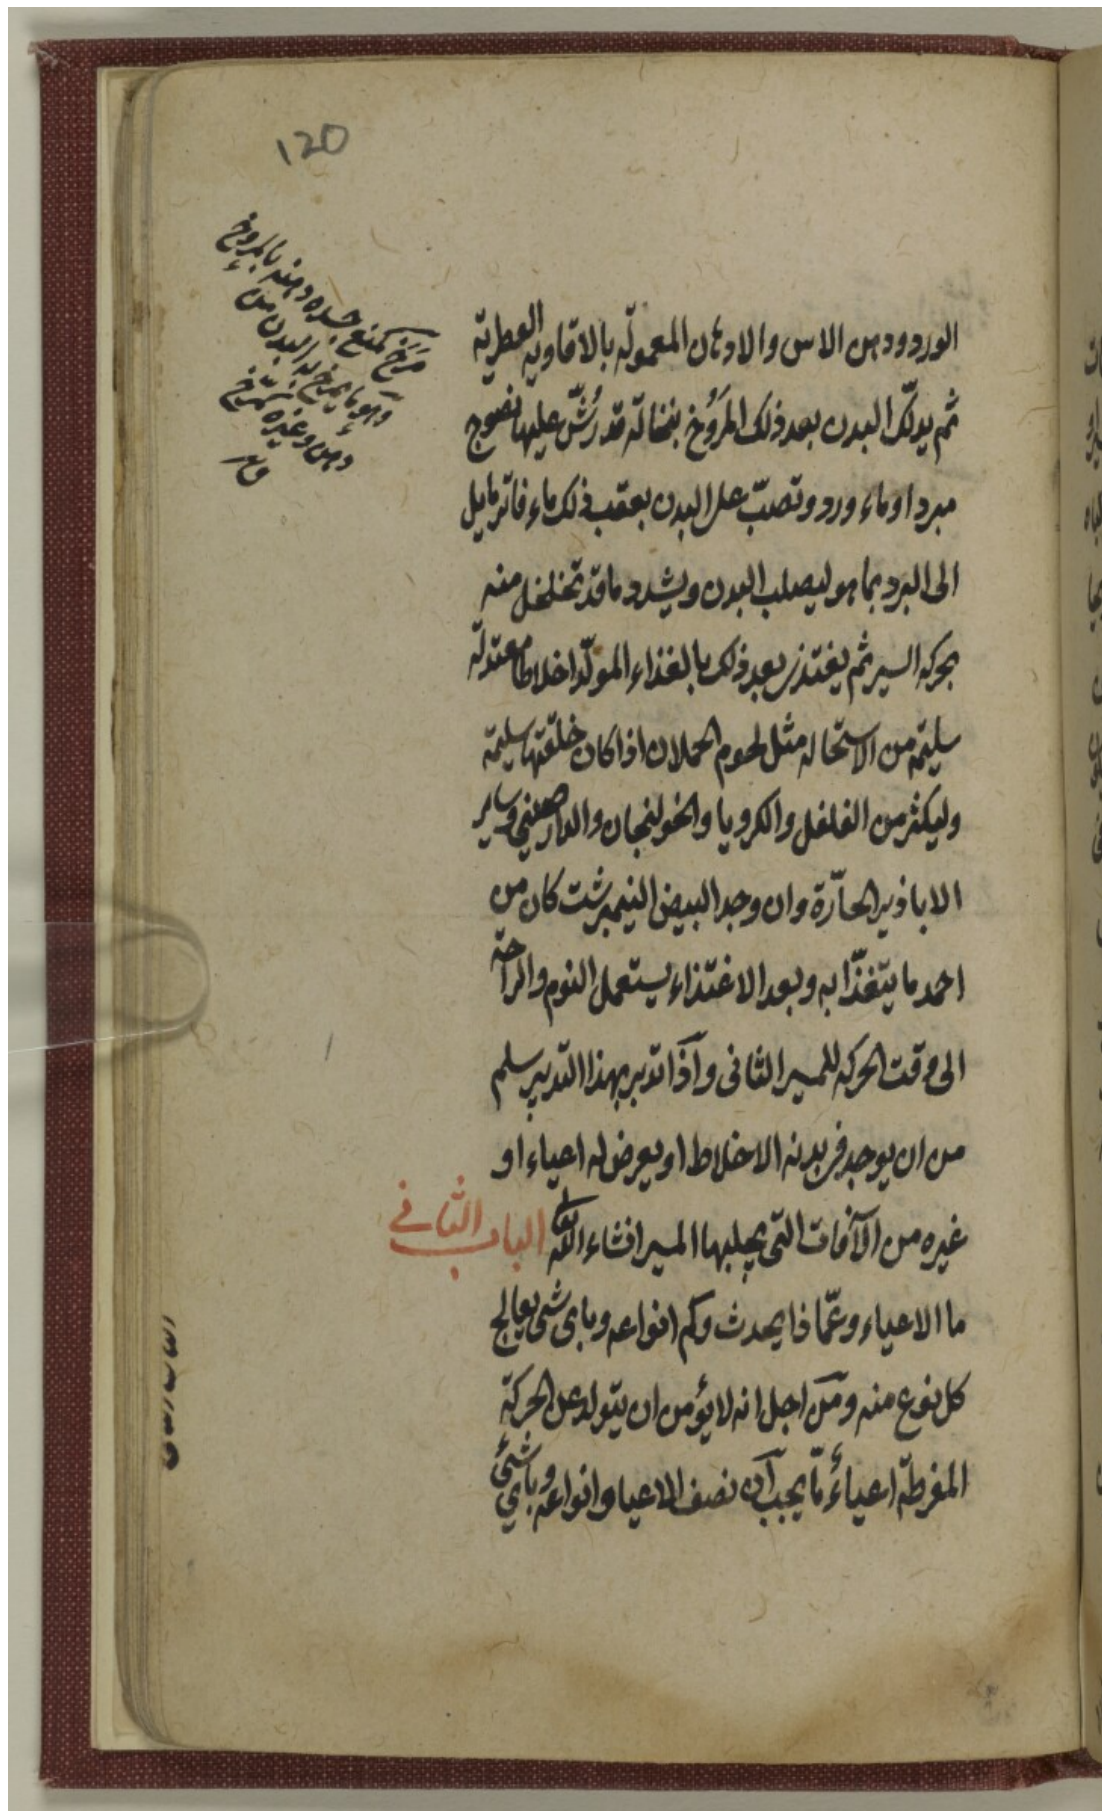 ١٢٥
مَرَخَ كمنع جسده دهنه بالمروخ
وهو ما يمرخ به البدن من
دهن وغيره كمرّخ
ق
الورد ودهن الاس والادهان المعمولة بالافاويه العطرية
ثم يدلّك البدن بعد ذلك المَرُوخ بنخالة قد رُشّ عليها نضوج
مبرد او ماء ورد وتصبّ على البدن بعقب ذلك ماء فاتر مايل
الى البرد بما هو ليصلب البدن ويشدد ما قد تخلخل منه
بحركة السير ثم يغتذى بعد ذلك بالغذاء المولّد اخلاطا معتدلة
سليمة من الاستحالة مثل لحوم الحملان اذا كان خلقتها سليمة
وليكثر من الفلفل والكرويا والخولنجان والدارصيني وساير
الابازير الحارّة وان وجد البيض النيمبرشت كان من
احمد ما يتغذّا به وبعد الاغتذاء يستعمل النوم والراحة
الى وقت الحركة للمسير الثانى وآذا تدبر بهذا التدبير سلم
من ان يوجد فى بدنه الاخلاط او يعرض له اعياء او
غيره من الآفات التى يجلبها المسير انشاء الله تعالى الباب الثانى
ما الاعياء وعمّا ذا يحدث وكم انواعه وباى شى يعالج
كل نوع منه ومن اجل انه لا يؤمن ان يتولد عن الحركة
المفرطة اعياءٌ مّا يجب آن نصف الاعيا وانواعه وبأي شئ